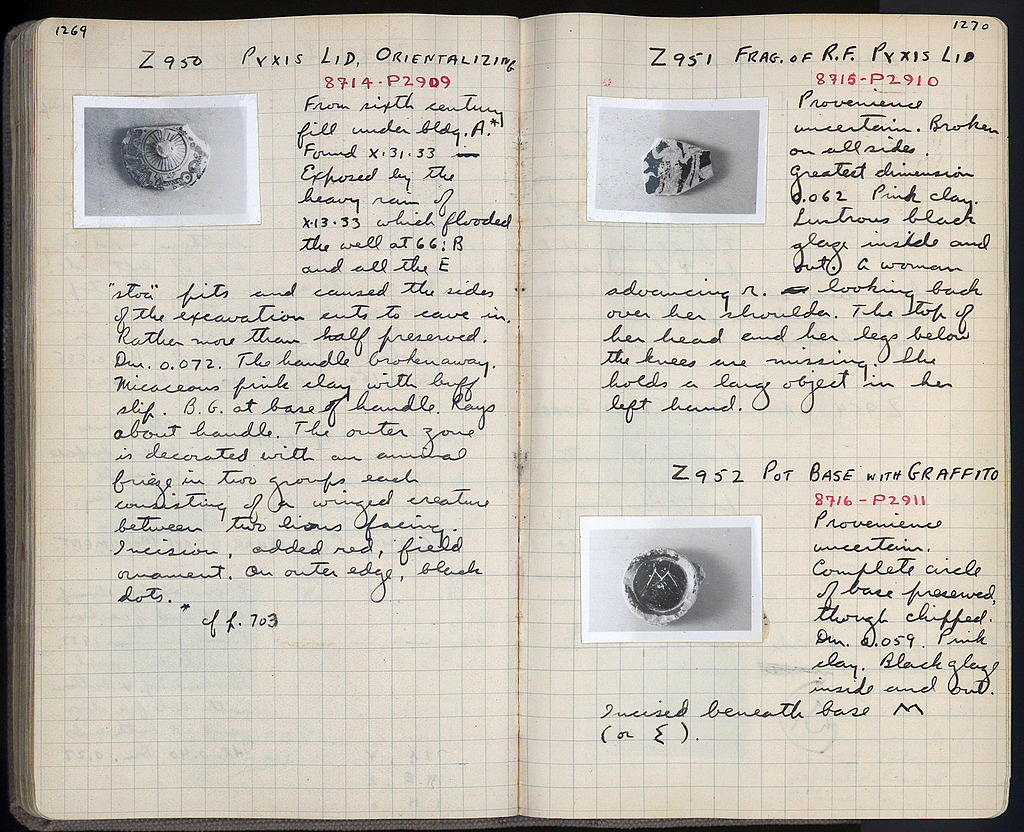 1269
Z 950 PYXIS LID, ORIENTALIZING
8714-P2909
From sixth century
fill under bldg. A.*
Found X.31.33
Exposed by the
heavy rain of
X.13.33 which flooded
the well at 66:B
and all the E
"stoa" pits and caused the sides
of the excavation cuts to cave in.
Rather more than half preserved.
Dm. 0.072. The handle broken away.
Micaceous pink clay with buff
slip. B.G. at base of handle. Rays
about handle. The outer zone
is decorated with an animal
frieze in two groups each
consisting of a winged creature
between two lions facing.
Incision, added red, field
ornament. On outer edge, black
dots.
* cf p. 703
1270
Z951 FRAG. OF R.F. PYXIS LID
8715-P2910
Provenience
uncertain. Broken
on all sides.
Greatest dimension
0.062 Pink clay.
Lustrous black
glaze inside and
out. A woman
advancing r. looking back
over her shoulder. The top of
her head and her legs below
the knees are missing. She
holds a large object in her
left hand.
Z952 POT BASE WITH GRAFFITO
8716-P2911
Provenience
uncertain.
Complete circle
of base preserved,
though chipped.
Dm. 0.059. Pink
clay. Black glaze
inside and out.
Incised beneath base M
(or Σ).